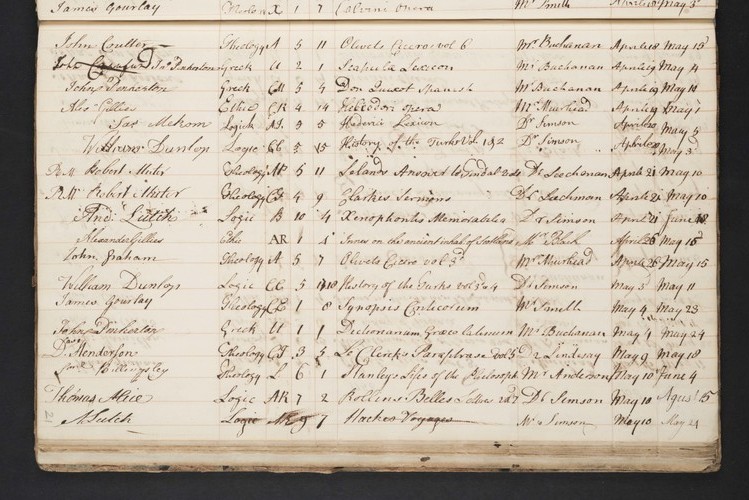 James Gourlay Theolog X 1 7 Calvini opera Mr Smith Aprile18 May 3d
John Coulter Theology A 5 11 Olivets Cicero vol 6 Mr Buchanan Aprile18 May 15
John Jas Pinkerton Greek U 2 1 Scapulæ Lexicon Mr Buchanan Aprile19 May 4
John Pinkerton Greek 5 4 Don Quixot Spanish Mr Buchanan Aprile19 May 10
Alexr Gillies Ethic 4 14 opera Mr Muirhead Aprile19 May 1
Jas Logick 3 5 Lexicon Dr Simson Aprile20 May 5
William Dunlop Logic CC 5 15 History of the Turks Vol 1 & 2 Dr Simson Aprile20 May 3d
B M Robert Theology 5 11 Lelands Answer to Tindal Dr Leechman Aprile 21 May 10
B M Robert Theology 4 9 Clarkes Sermons Dr Leechman Aprile 21 May 10
And: Leitch Logic B 10 4 Xenophontis Memorabiles Dr Simson April 21 June
Alexander Gillies Ethic AR 1 4 Innes on the ancient inhab. of Scotland Mr April 26 May 16
John Graham Theology A 5 7 Olivets Cicero vol 3d Mr Muirhead Aprile 26 May 15
William Dunlop Logic CC 5 History of the Turks vol 3d & 4 Dr Simson May 3 May 11
James Gourlay Theology 1 8 Synopsis Criticorum Mr Smith May 4 May 23
John Pinkerton Greek U 1 1 Dictionarium Græco latinum Mr Buchanan May 4 May 24
D Henderson Theology 3 5 Le Clerk's Paraphrase vol 5 Dr Lindsay May 9 May 18
Billingsley Theology L 6 1 Stanley's Lifes of the Philosoph Mr Anderson May 10 June 4
Thomas Logic AR 7 2 Rollins Belles Lettres vol Dr Simson May 10 Agust 15
A Leitch Logic 9 7 Hackes Voyages Mr Simson May 10 May 24